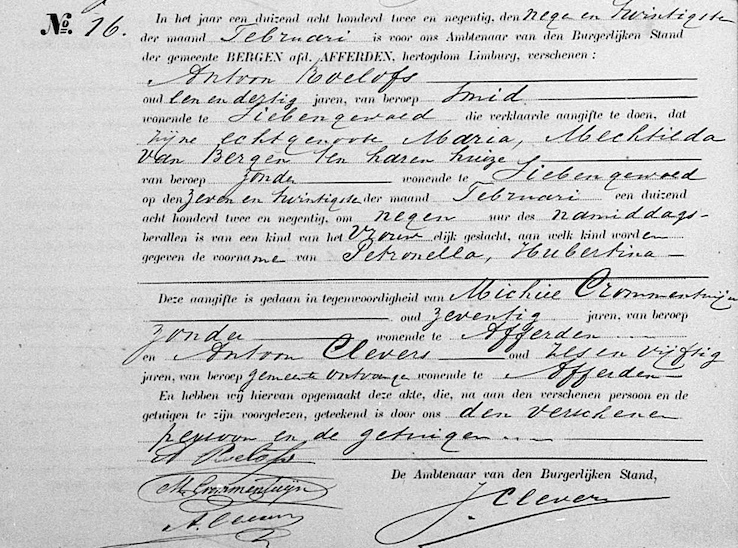 No. 16. In het jaar een duizend acht honderd twee en negentig, den negen en twintigste
der maand Februari is voor ons Ambtenaar van den Burgerlijken Stand
der gemeente BERGEN afd. AFFERDEN, hertogdom Limburg, verschenen:
Antoon Roelofs
oud een en dertig jaren, van beroep Smid
wonende te Siebengewoed die verklaarde aangifte te doen, dat
zijne echtgenoote Maria, Mechtilda
van Bergen ten haren huize
van beroep zonder wonende te Siebengewoed
op den zeven en twintigste der maand Februari een duizend
acht honderd twee en negentig, om negen uur des namiddags-
bevallen is van een kind van het Vrouwelijk geslacht, aan welk kind worden
gegeven de voorname van Petronella, Hubertina
Deze aangifte is gedaan in tegenwoordigheid van Michiel Crommentuijn
oud zeventig jaren, van beroep
zonder wonende te Afferden
en Antoon Clevers oud zes en vijftig
jaren, van beroep gemeente ontvanger wonende te Afferden
En hebben wij hiervan opgemaakt deze akte, die, na aan den verschenen persoon en de
getuigen te zijn voorgelezen, geteekend is door ons den verschenen
persoon en de getuigen
A Roelofs
De Ambtenaar van den Burgerlijken Stand,
M Crommentuijn
J. Clevers
A. Clevers